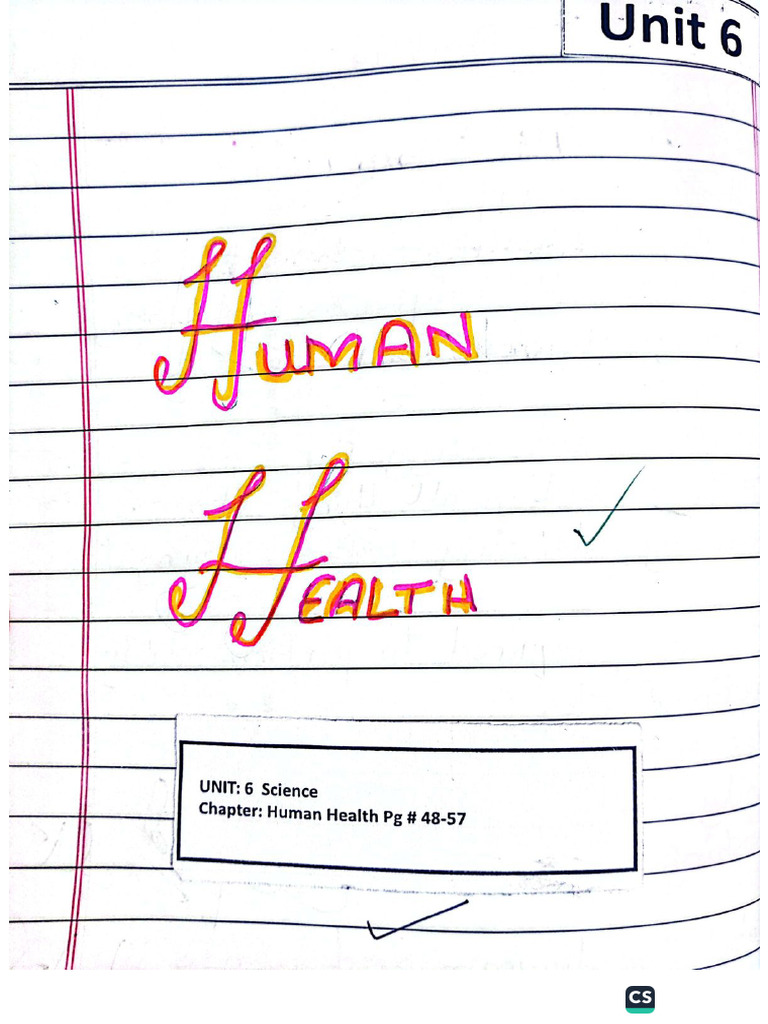 Unit 6
HUMAN
HEALTH
UNIT: 6 Science
Chapter: Human Health Pg # 48-57
CS